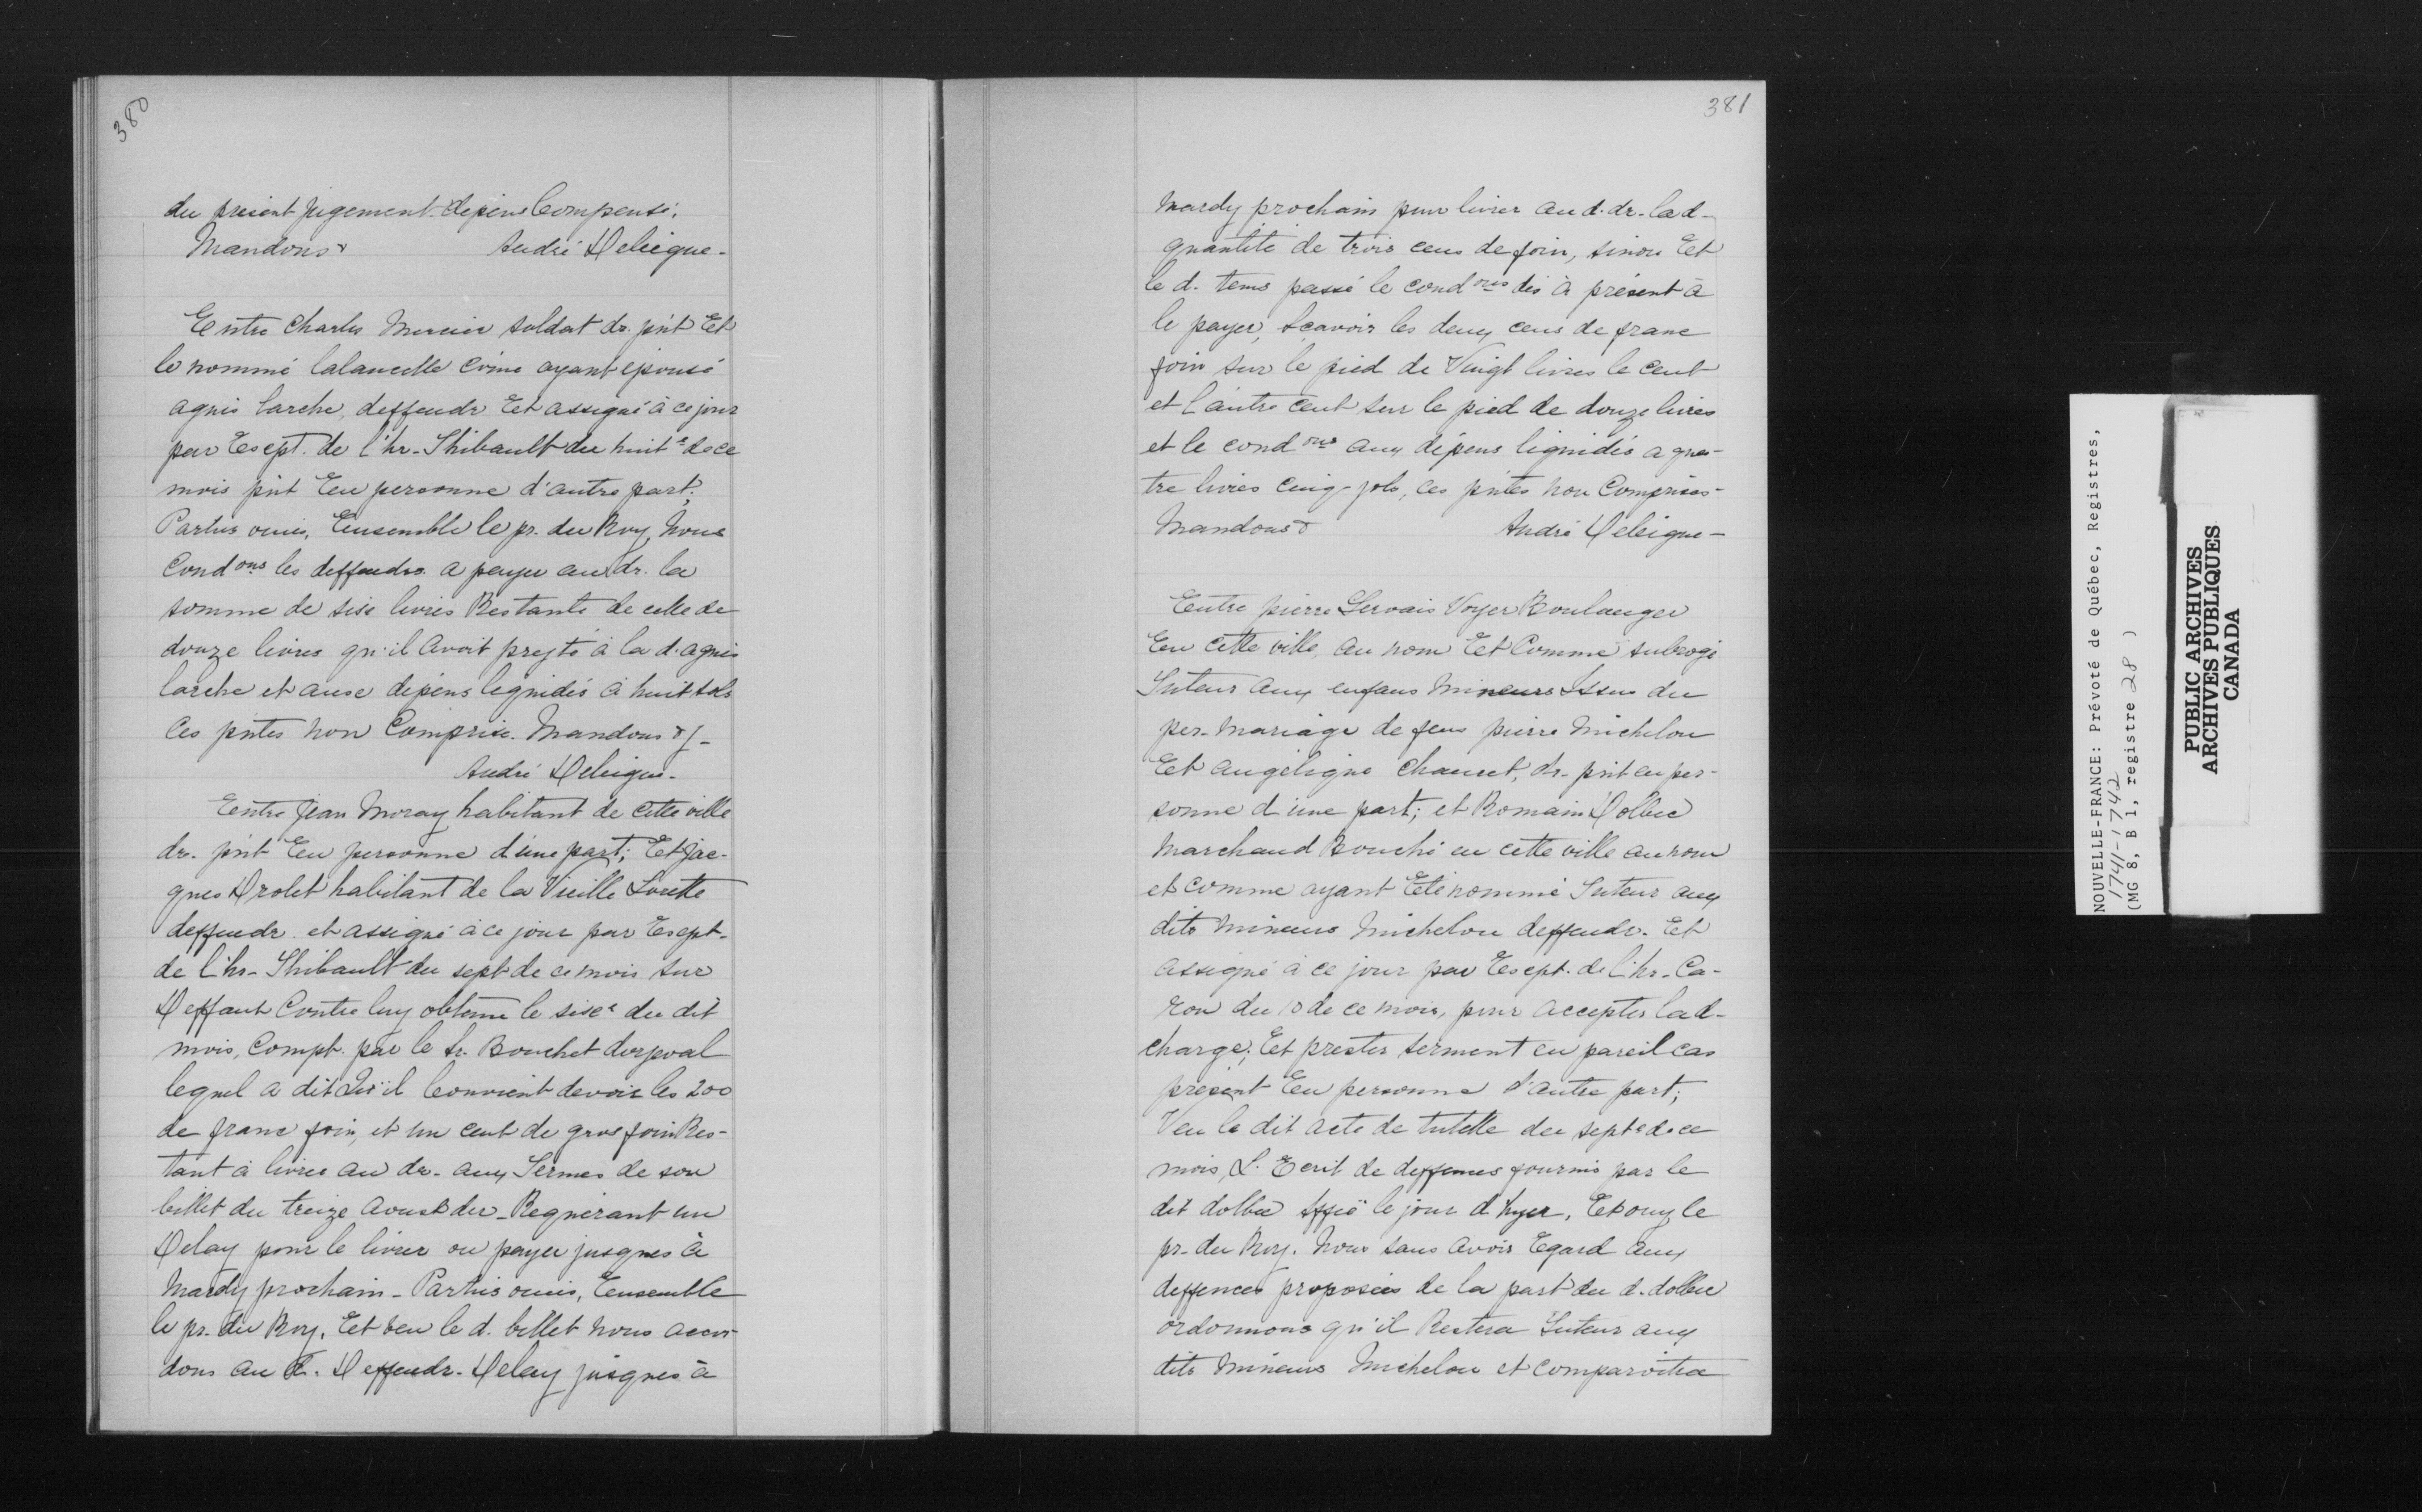 380
du présent jugement dépens Compensé.
Mandons & André Deleigne -
Entre Charles Mercier soldat dr. pnt Et
le nommé lalancette Coime ayant épousé
agnis larche, deffendr Et assigné à ce jour
par Exept. de l'hr. Thibault du huit e de ce
mois pnt En personne d'autre part;
Parties ouies, Ensemble le pr. du Roy, Nous
Cond ons les deffendrs a payer au dr. la
somme de sixe livres Restante de celle de
douze livres qu'il avoit presté à la d. agnis
larche et auxe dépens liquidés à huit sols
Ces pntes non Comprise. Mandons &/-
André Deleigne -
Entre Jean Moray habitant de Cette ville
dr. pnt En personne d'une part; Et Jac-
ques Drolet habitant de la Vieille Lorette
deffendr. et assigné à ce jour par Exept.
de l'hr. Thibault du sept de ce mois sur
Deffaut Contre luy obtenu le sixe e du dit
mois, Compt. par le Sr. Bouchet dorpval
lequel a dit Qu'il Convient devoir les 200
de franc foin, et un cent de gros foin Res-
tant à livrer au dr. aux Termes de son
billet du treize Aoust der - Requérant un
Delay pour le livrer ou payer jusques à
Mardy prochain - Parties ouies, Ensemble
le pr. du Roy, Et veu le d. billet nous accor-
dons au d. Deffendr. Delay jusques à
381
Mardy prochain pour livrer au d. dr. la d-
quantité de trois cens de foin, sinon Et
le d. tems passé le cond ons dès à présent à
le payer, Sçavoir les deux cens de franc
foin sur le pied de Vingt livres le Cent
et l'autre Cent sur le pied de douze livres
et le cond ons aux dépens liquidés a qua-
tre livres cinq sols, ces pntes non Comprises-
Mandons & André Deleigne -
Entre pierre Gervais Voyer Boulanger
En Cette ville, au nom Et Comme subrogé
Tuteur aux enfans Mineurs Issus du
per. Mariage de feus pierre Michelon
Et angélique Chauvet, dr. pnt en per-
sonne d'une part; et Romain Dolbec
Marchand Bouché en cette ville au nom
et comme ayant Eté nommé Tuteur aux
dits Mineurs Michelon deffendr. Et
assigné à ce jour par Exept. de l'hr. Ca-
ron du 10 de ce mois, pour accepter la d-
charge; Et prester serment en pareil cas
présent En personne d'autre part;
Veu le dit acte de tutelle du sept e de ce
mois, L'Ecrit de deffences fournis par le
dit dolbec le jour d'hyer, Et ouy le
pr. du Roy. Nous sans avoir Egard aux
deffences proposées de la part du d. dolbec
ordonnons qu'il Restera Tuteur aux
dits Mineurs Michelon et comparoîtra
NOUVELLE-FRANCE: Prévoté de Québec, Registres,
1741-1742
(MG 8, B 1, registre 28 )
PUBLIC ARCHIVES
ARCHIVES PUBLIQUES
CANADA